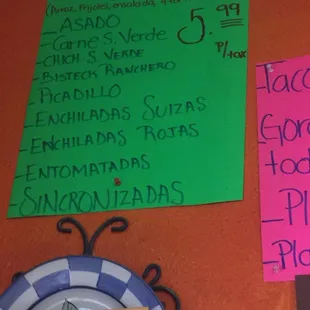 (Arroz, frijoles, ensalada,
- ASADO
- Carne S. Verde
5.99
P/tax
- CHICH S. VERDE
- BISTECK RANCHERO
- PICADILLO
- ENCHILADAS SUIZAS
- ENCHILADAS ROJAS
- ENTOMATADAS
- SINCRONIZADAS
- Taco
Gor
tod
- Pl
- Pla